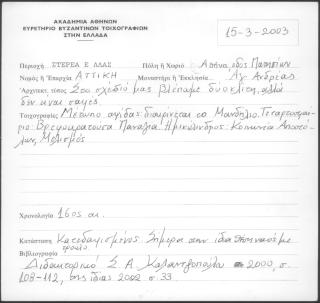 ΑΚΑΔΗΜΙΑ ΑΘΗΝΩΝ
ΕΥΡΕΤΗΡΙΟ ΒΥΖΑΝΤΙΝΩΝ ΤΟΙΧΟΓΡΑΦΙΩΝ
ΣΤΗΝ ΕΛΛΑΔΑ
15-3-2003
Περιοχή ΣΤΕΡΕΑ ΕΛΛΑΣ Πόλη ή Χωριό Αθήνα, οδός
Νομός ή Επαρχία ΑΤΤΙΚΗ Μοναστήρι ή Εκκλησία Αγ. Ανδρέας
Αρχιτεκτ. τύπος Στο σχέδιό μας βλέπομε δύο κλίτη, αλλά
δεν είναι σαφές.
Τοιχογραφίες Μέτωπο αψίδας διαιρείται το Μανδήλιο. Τεταρτοσφαίριο
Βρεφοκρατούσα Παναγία. Ημικύλινδρος: Κοινωνία Αποστό-
λων, Μελισμός
Χρονολογία 16ος αι.
Κατάσταση Κατεδαφισμένος. Σήμερα στην ίδια θέση ναός με
τρούλο
Βιβλιογραφία
Διδακτορικό Σ. Α. Καλαντζοπούλου 2000, σ.
108-112, της ίδιας 2002 σ. 33.